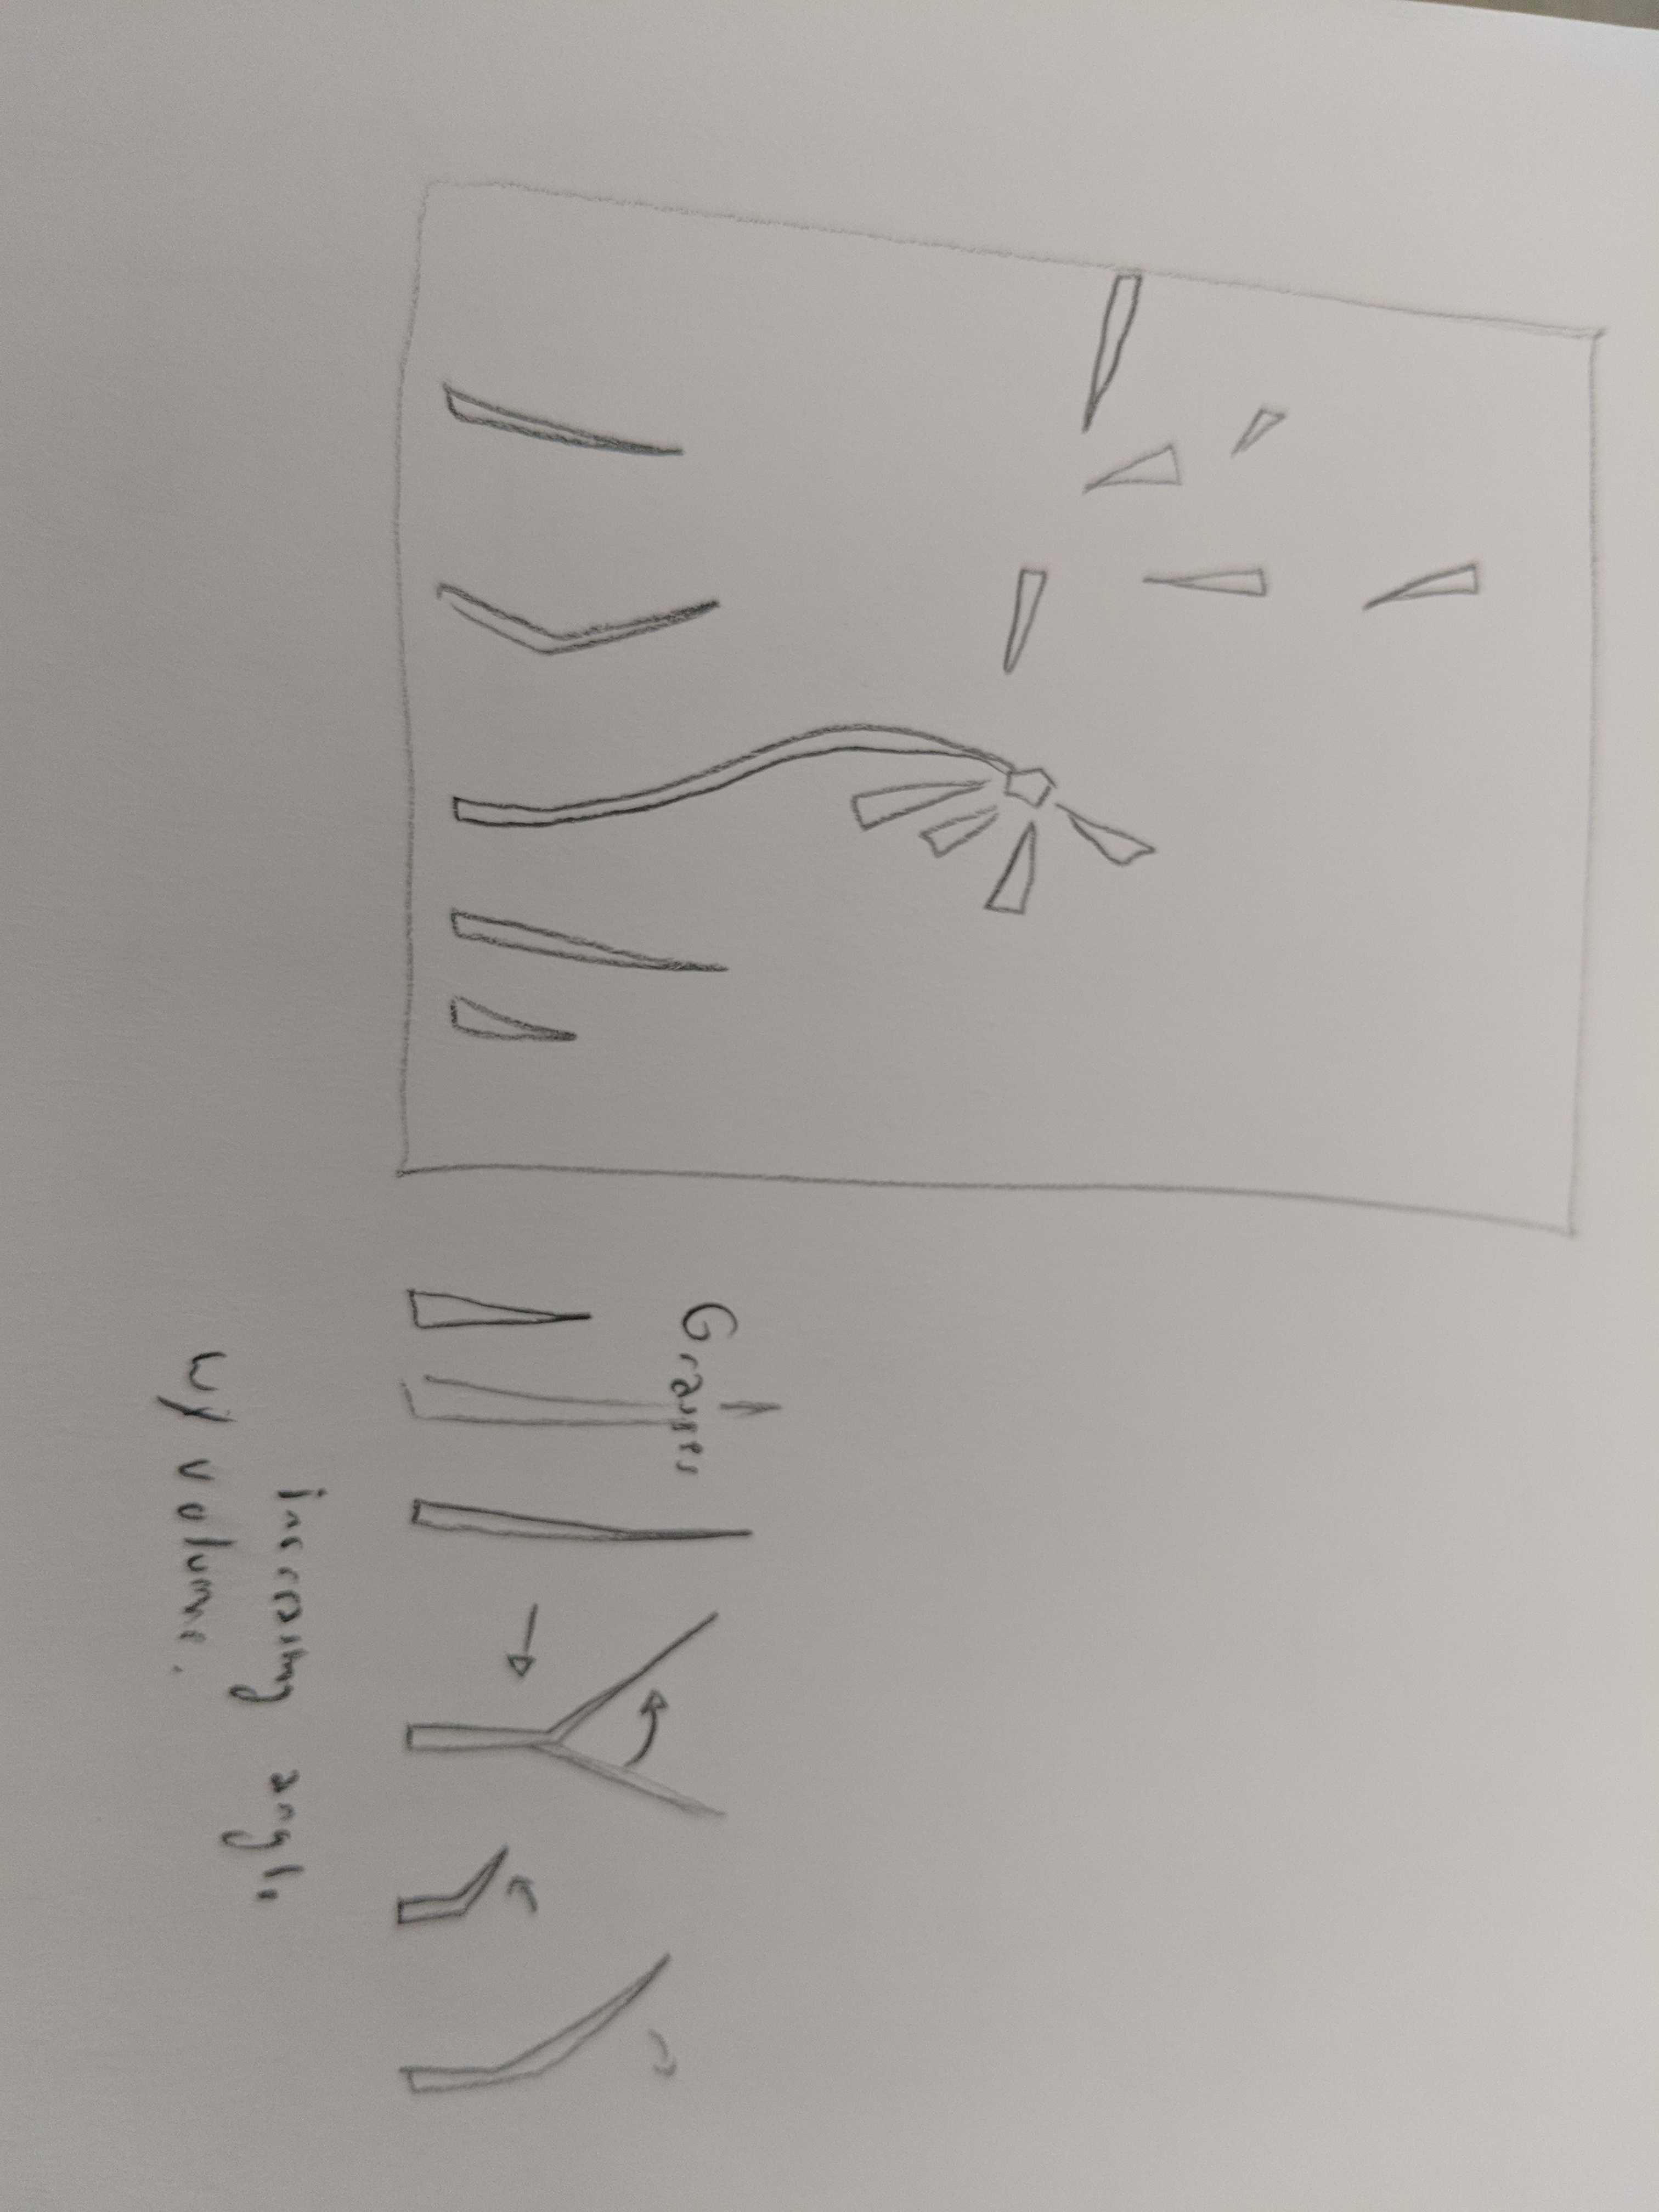 Grasses
increasing angle
w/ volume.